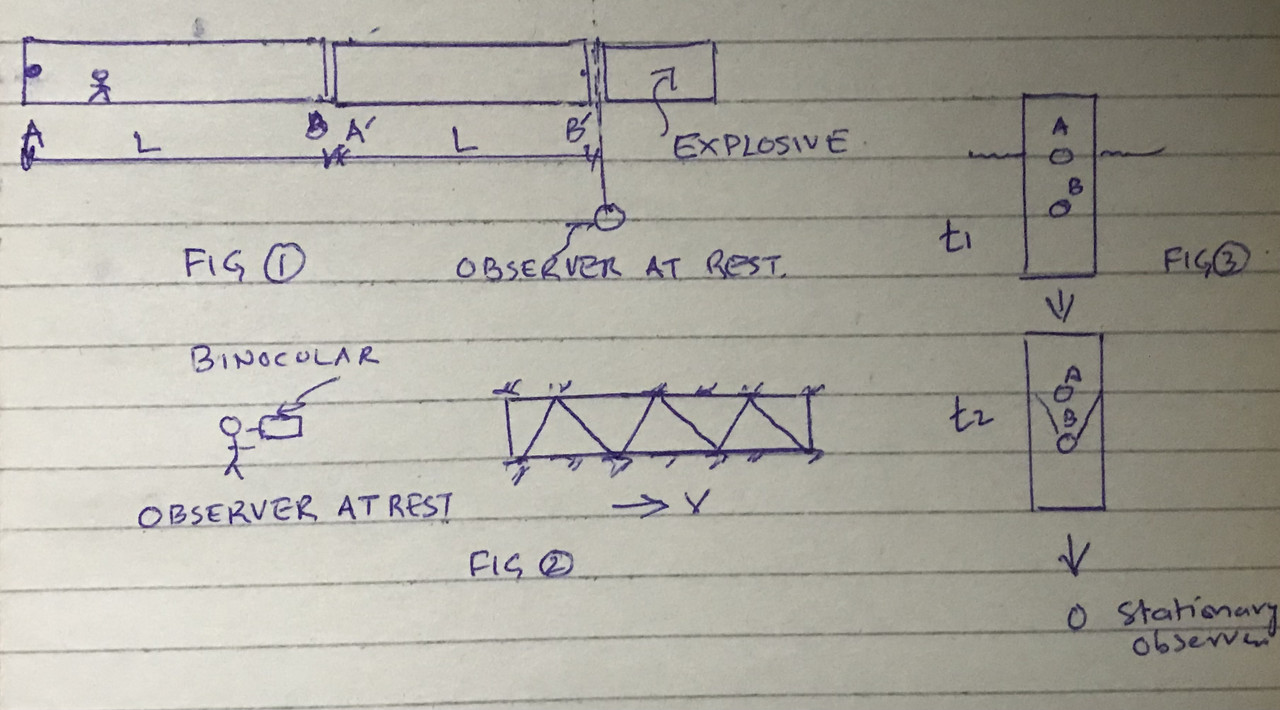 A L B A' L B'
EXPLOSIVE
FIG ①
OBSERVER AT REST.
A
B
t1
FIG ③
BINOCULAR
OBSERVER AT REST
→ V
FIG ②
A
B
t2
O Stationary
Observer